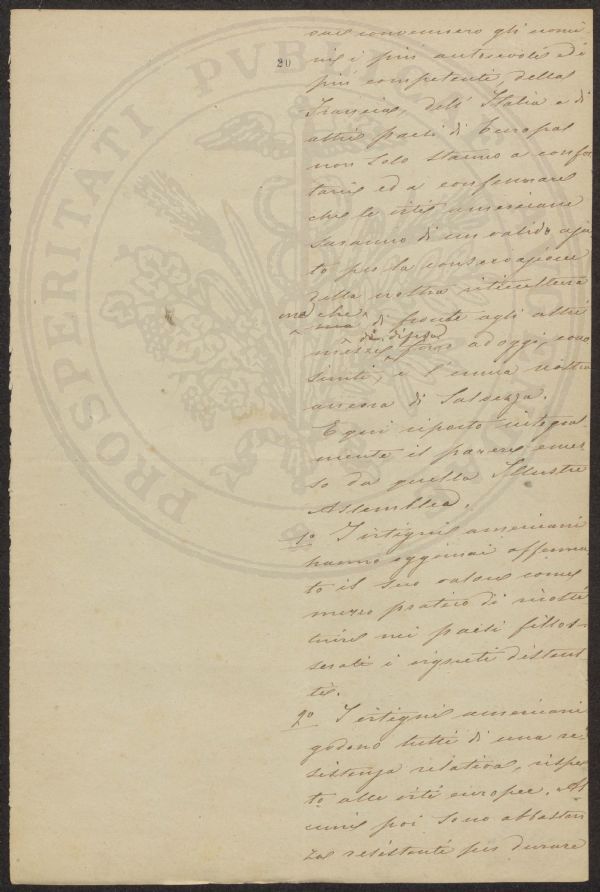 PROSPERITATI PVBLICAE
20
convennero gli uomi-
ni i più autorevoli ed i
più competenti della
Francia, dell' Italia e di
altri paesi di Europa
non solo stanno a confor
tare ed a confermare
che le viti americane
saranno di un valido aju
to per la conservazione
della nostra viticultura
ma che
di fronte agli altri
di difesa
mezzi fino ad oggi cono
sciuti, è l'unica nostra
ancora di Salvezza.
E qui riporto integral
mente il parere emes
so da quella Illustre
Assemblea.
1º I vitigni americani
hanno oggimai afferma
to il suo valore come
mezzo pratico di ricosti
tuire nei paesi fillos-
serati i vigneti distrut-
ti.
2º I vitigni americani
godono tutti di una re-
sistenza relativa, rispet
to alle viti europee. Al
cuni poi sono abbastan
za resistenti per durare